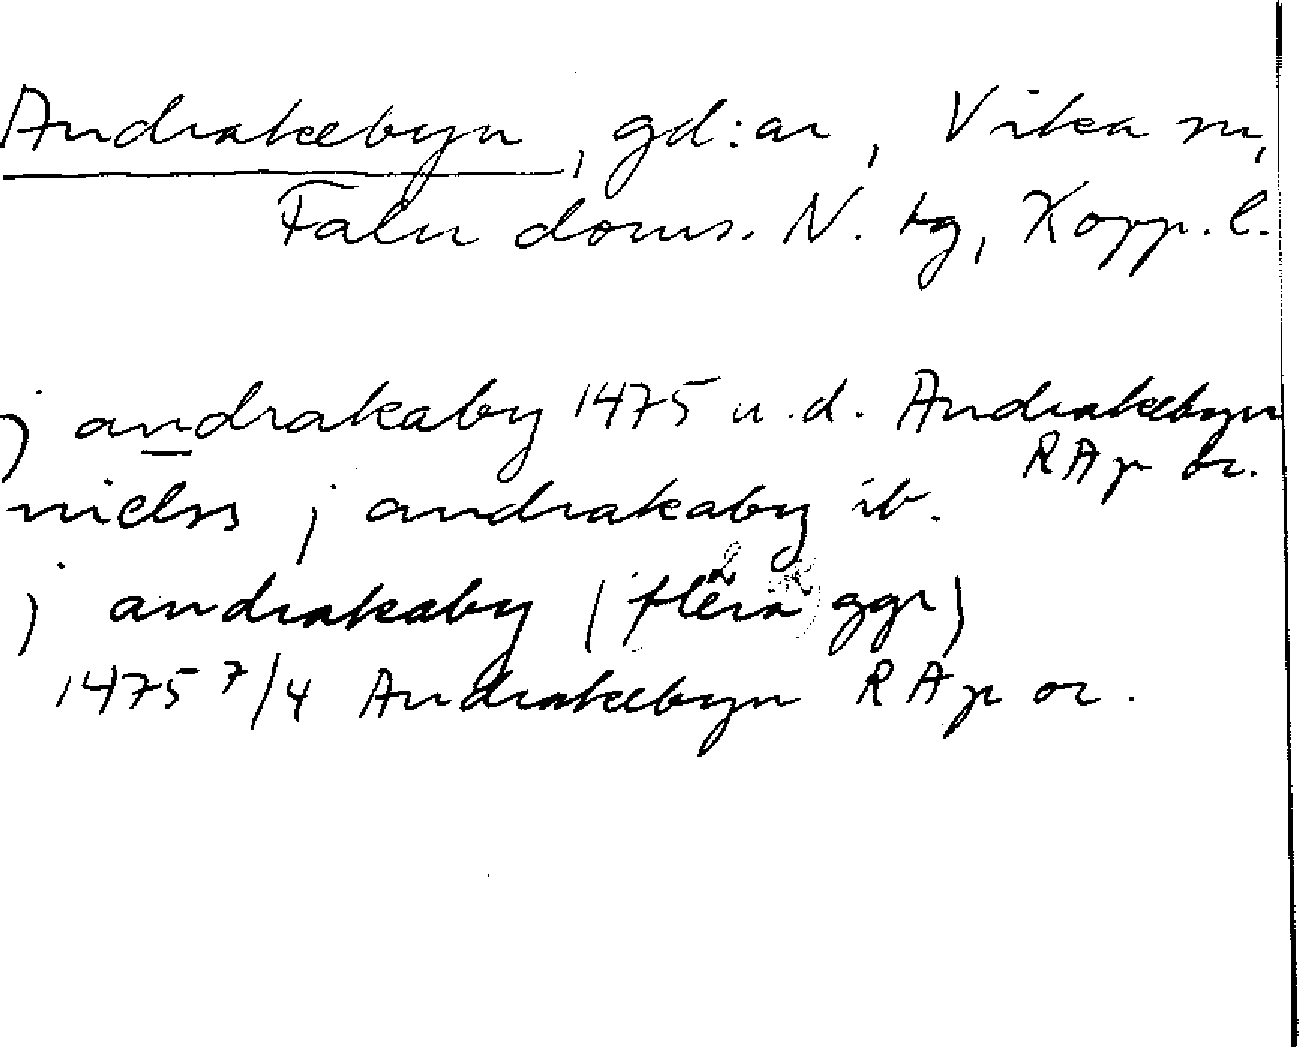 Andrakebyn, gd:ar, Vika sn,
Falu doms. N. tg, Kopp. l.
j andrakaby 1475 u.d. Andrakebyn
RAp or.
nielss j andrakaby ib.
j andrakaby (flera ggr)
1475 7/4 Andrakebyn RAp or.